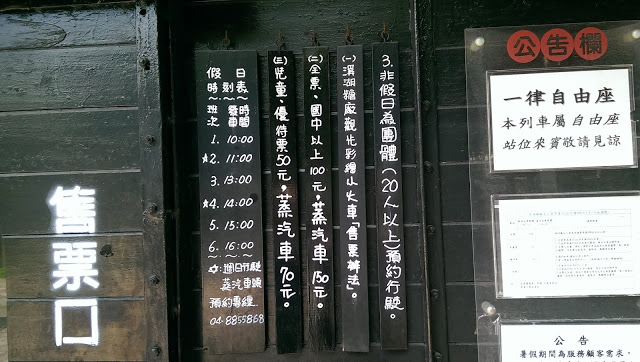 售票口
假日
時刻表
班次 發車時間
1. 10:00
☆2. 11:00
3. 13:00
☆4. 14:00
5. 15:00
6. 16:00
☆:週日行駛
蒸汽車頭
預約專線
04-8855868
(三)兒童、優待票50元，蒸汽車70元。
(二)全票、國中以上100元，蒸汽車150元。
(一)溪湖糖廠觀光彩繪小火車「售票辦法」。
3.非假日為團體(20人以上)預約行駛。
公告欄
一律自由座
本列車屬自由座
站位來賓敬請見諒
公告
暑假期間為服務顧客需求，